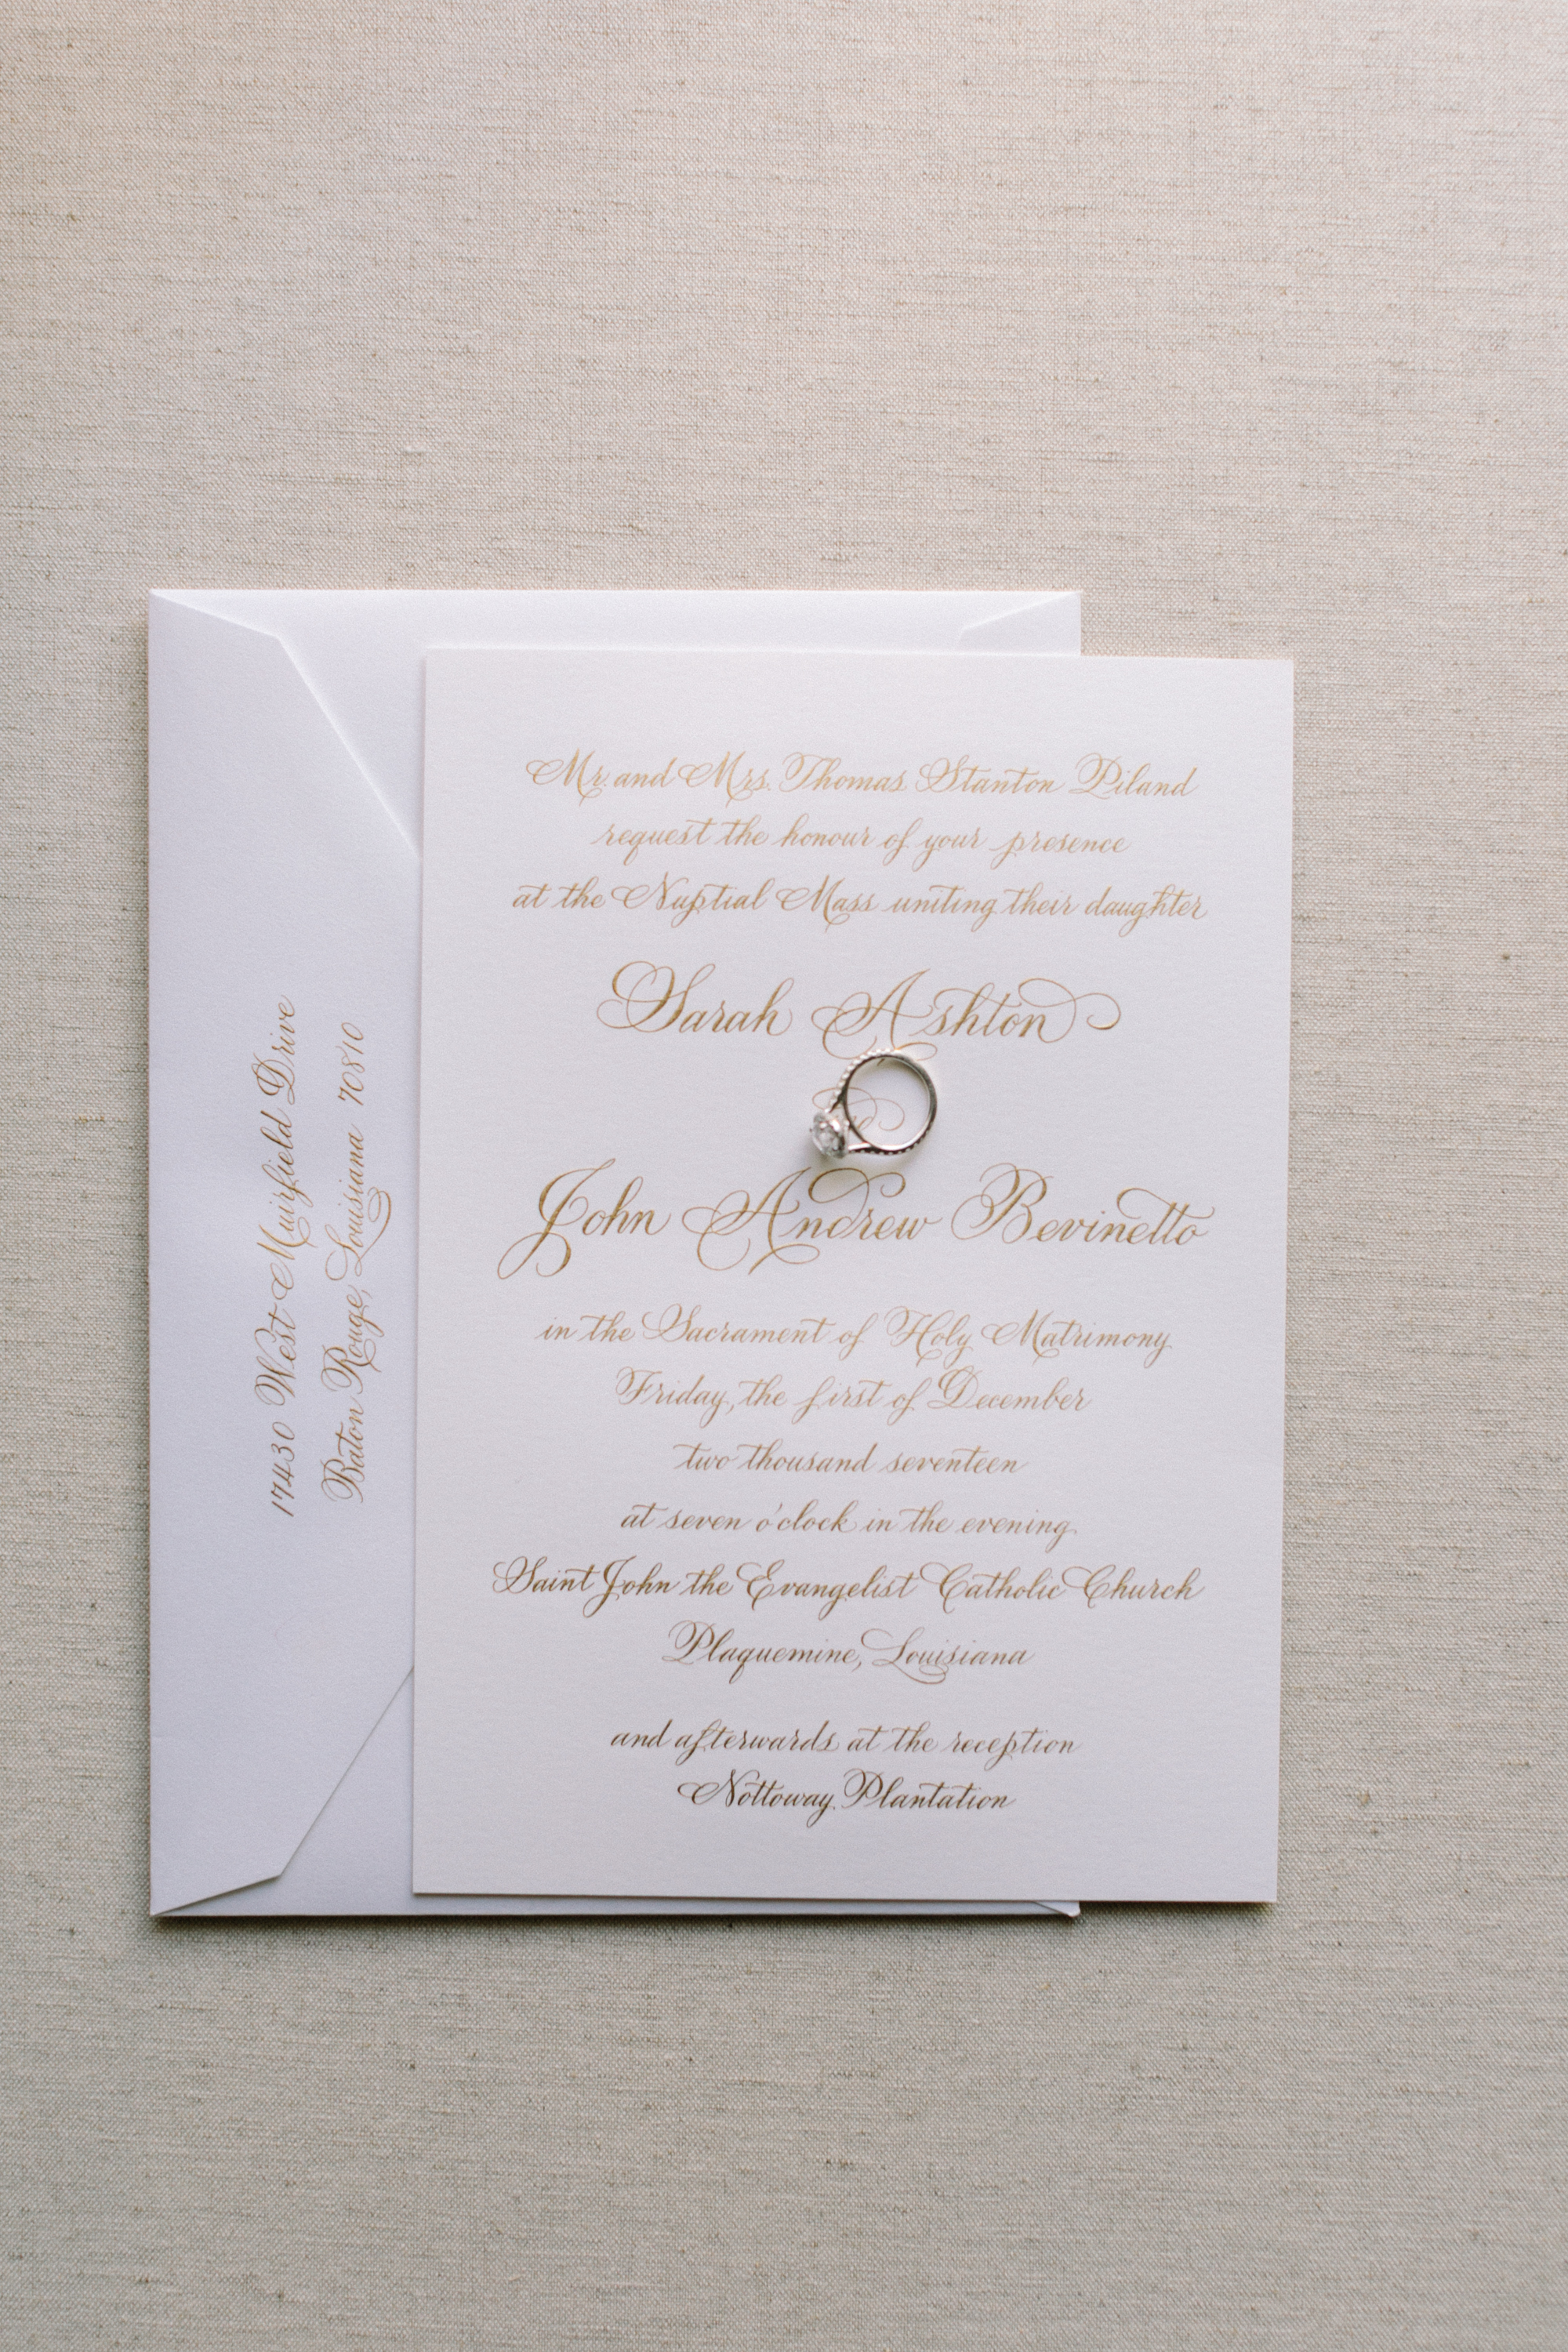 17430 West Muirfield Drive
Baton Rouge, Louisiana 70810
Mr. and Mrs. Thomas Stanton Piland
request the honour of your presence
at the Nuptial Mass uniting their daughter
Sarah Ashton
John Andrew Bevinetto
in the Sacrament of Holy Matrimony
Friday, the first of December
two thousand seventeen
at seven o'clock in the evening
Saint John the Evangelist Catholic Church
Plaquemine, Louisiana
and afterwards at the reception
Nottoway Plantation